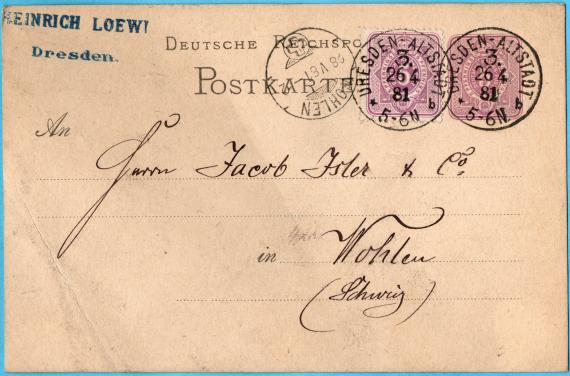 HEINRICH LOEWI
Dresden.
DEUTSCHE REICHSPO
POSTKARTE
WOHLEN
DRESDEN-ALTSTADT
3.
26 4
81
* 5-6N b
DRESDEN-ALTSTADT
3.
26 4
81
* 5-6N b
An
Herrn Jacob Isler & Co.
in Wohlen
(Schweiz)